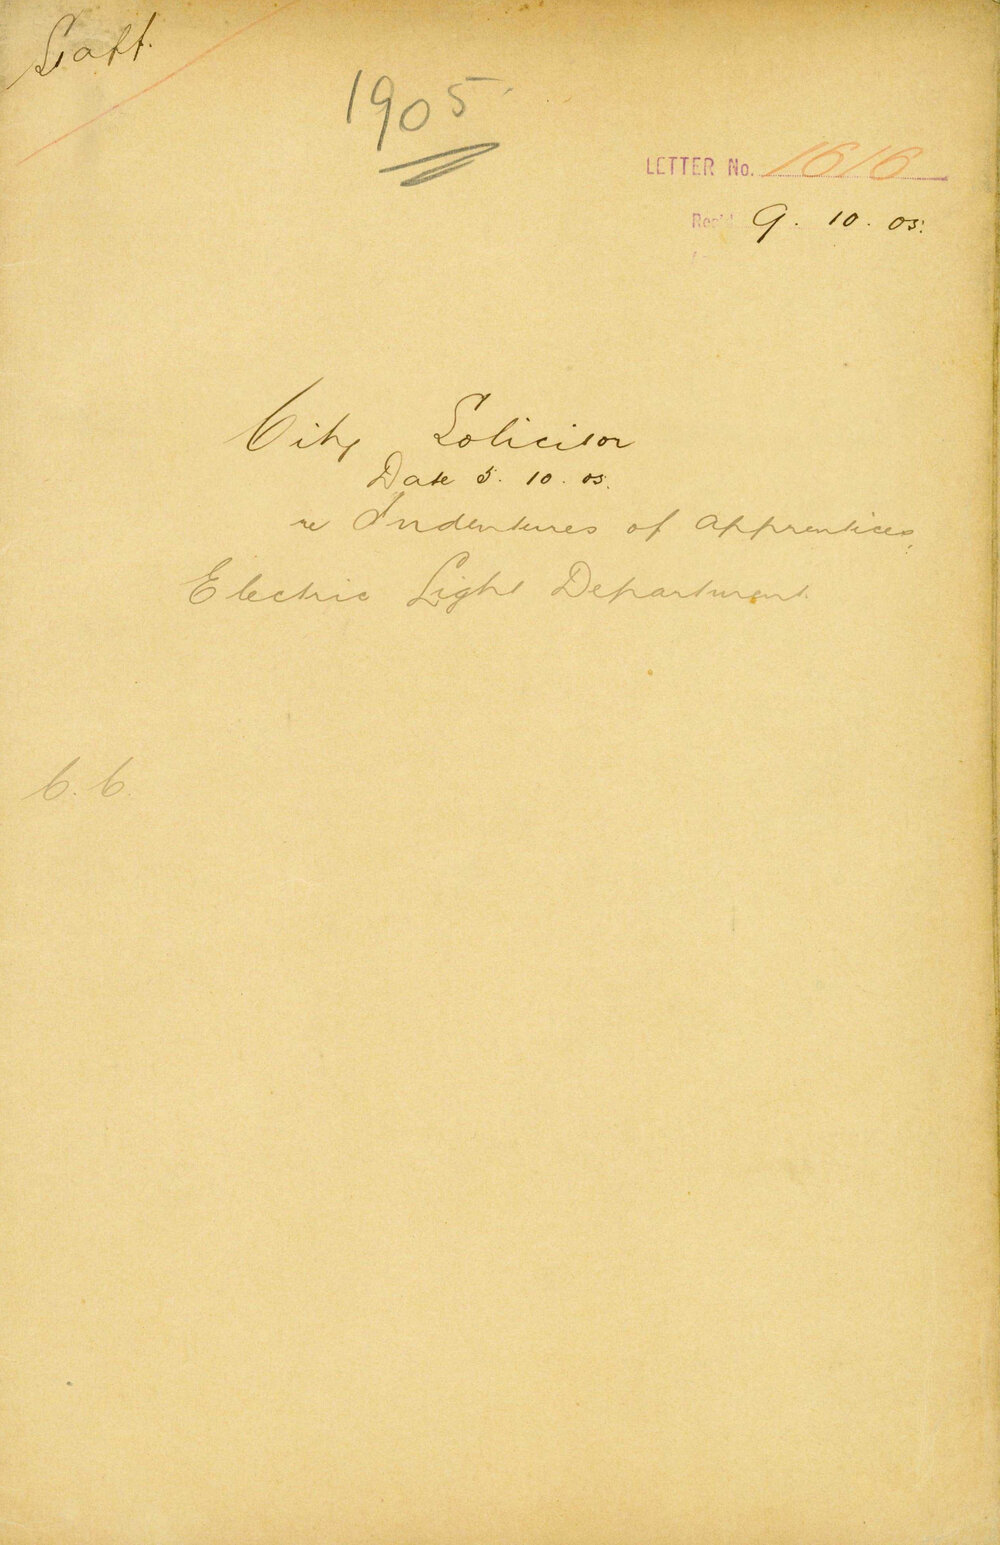 Staff.
1905
LETTER No. 1616
Rec'd 9. 10. 05.
City Solicitor
Date 5. 10. 05.
re Indentures of apprentices,
Electric Light Department
C. C.